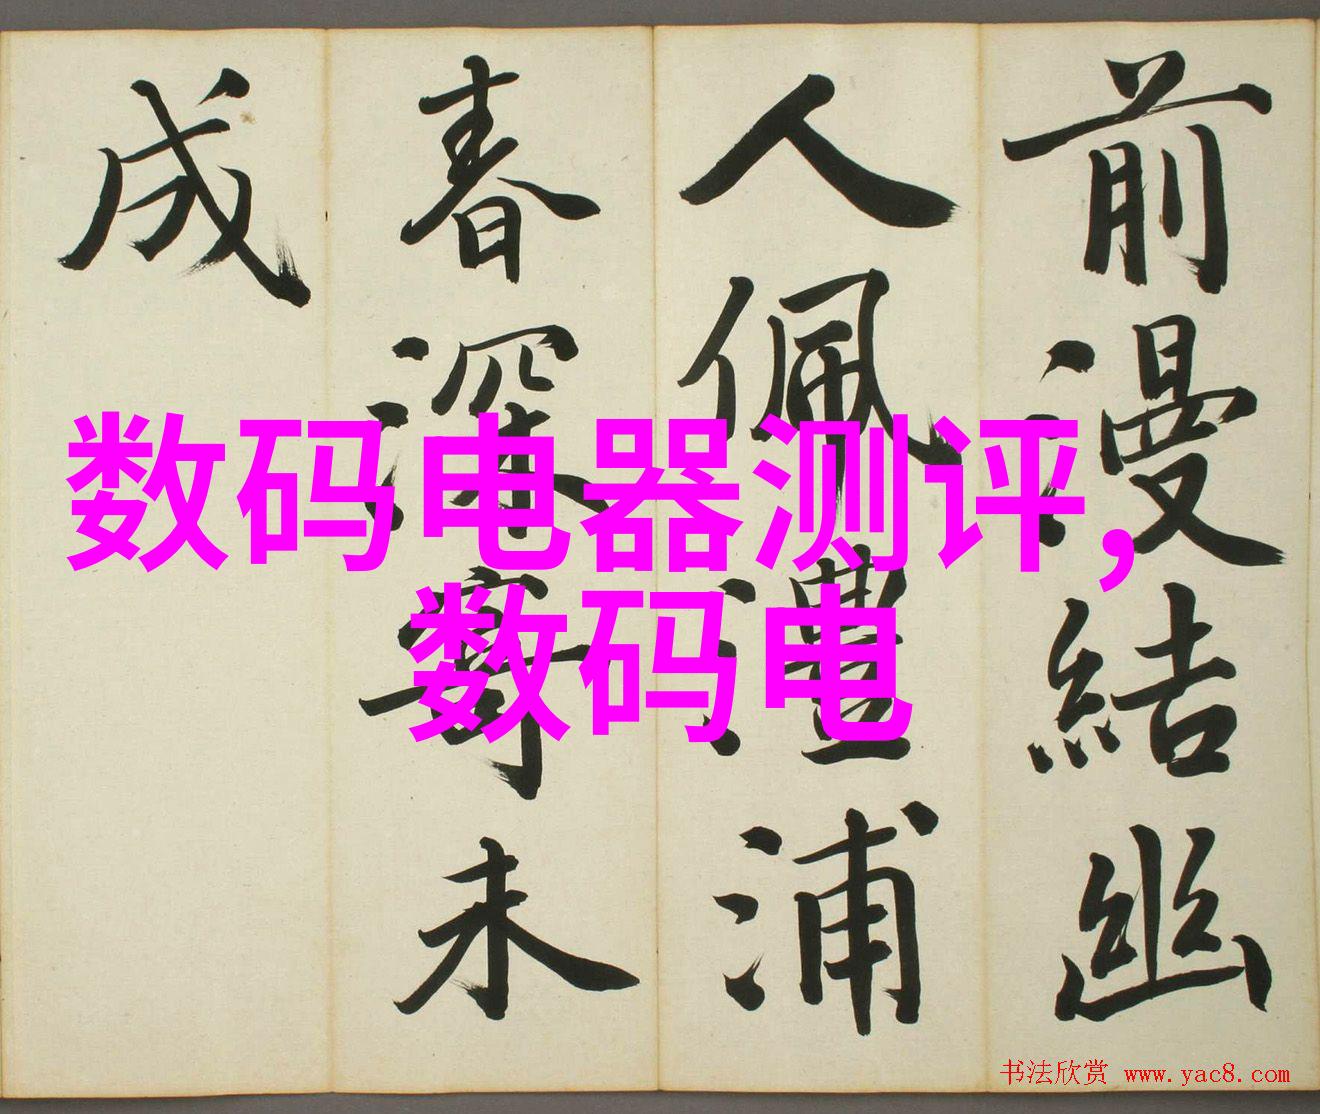 前漫結幽
人佩澧浦
春深尊未
成
数码电器测评,
数码电
书法欣赏 www.yac8.com